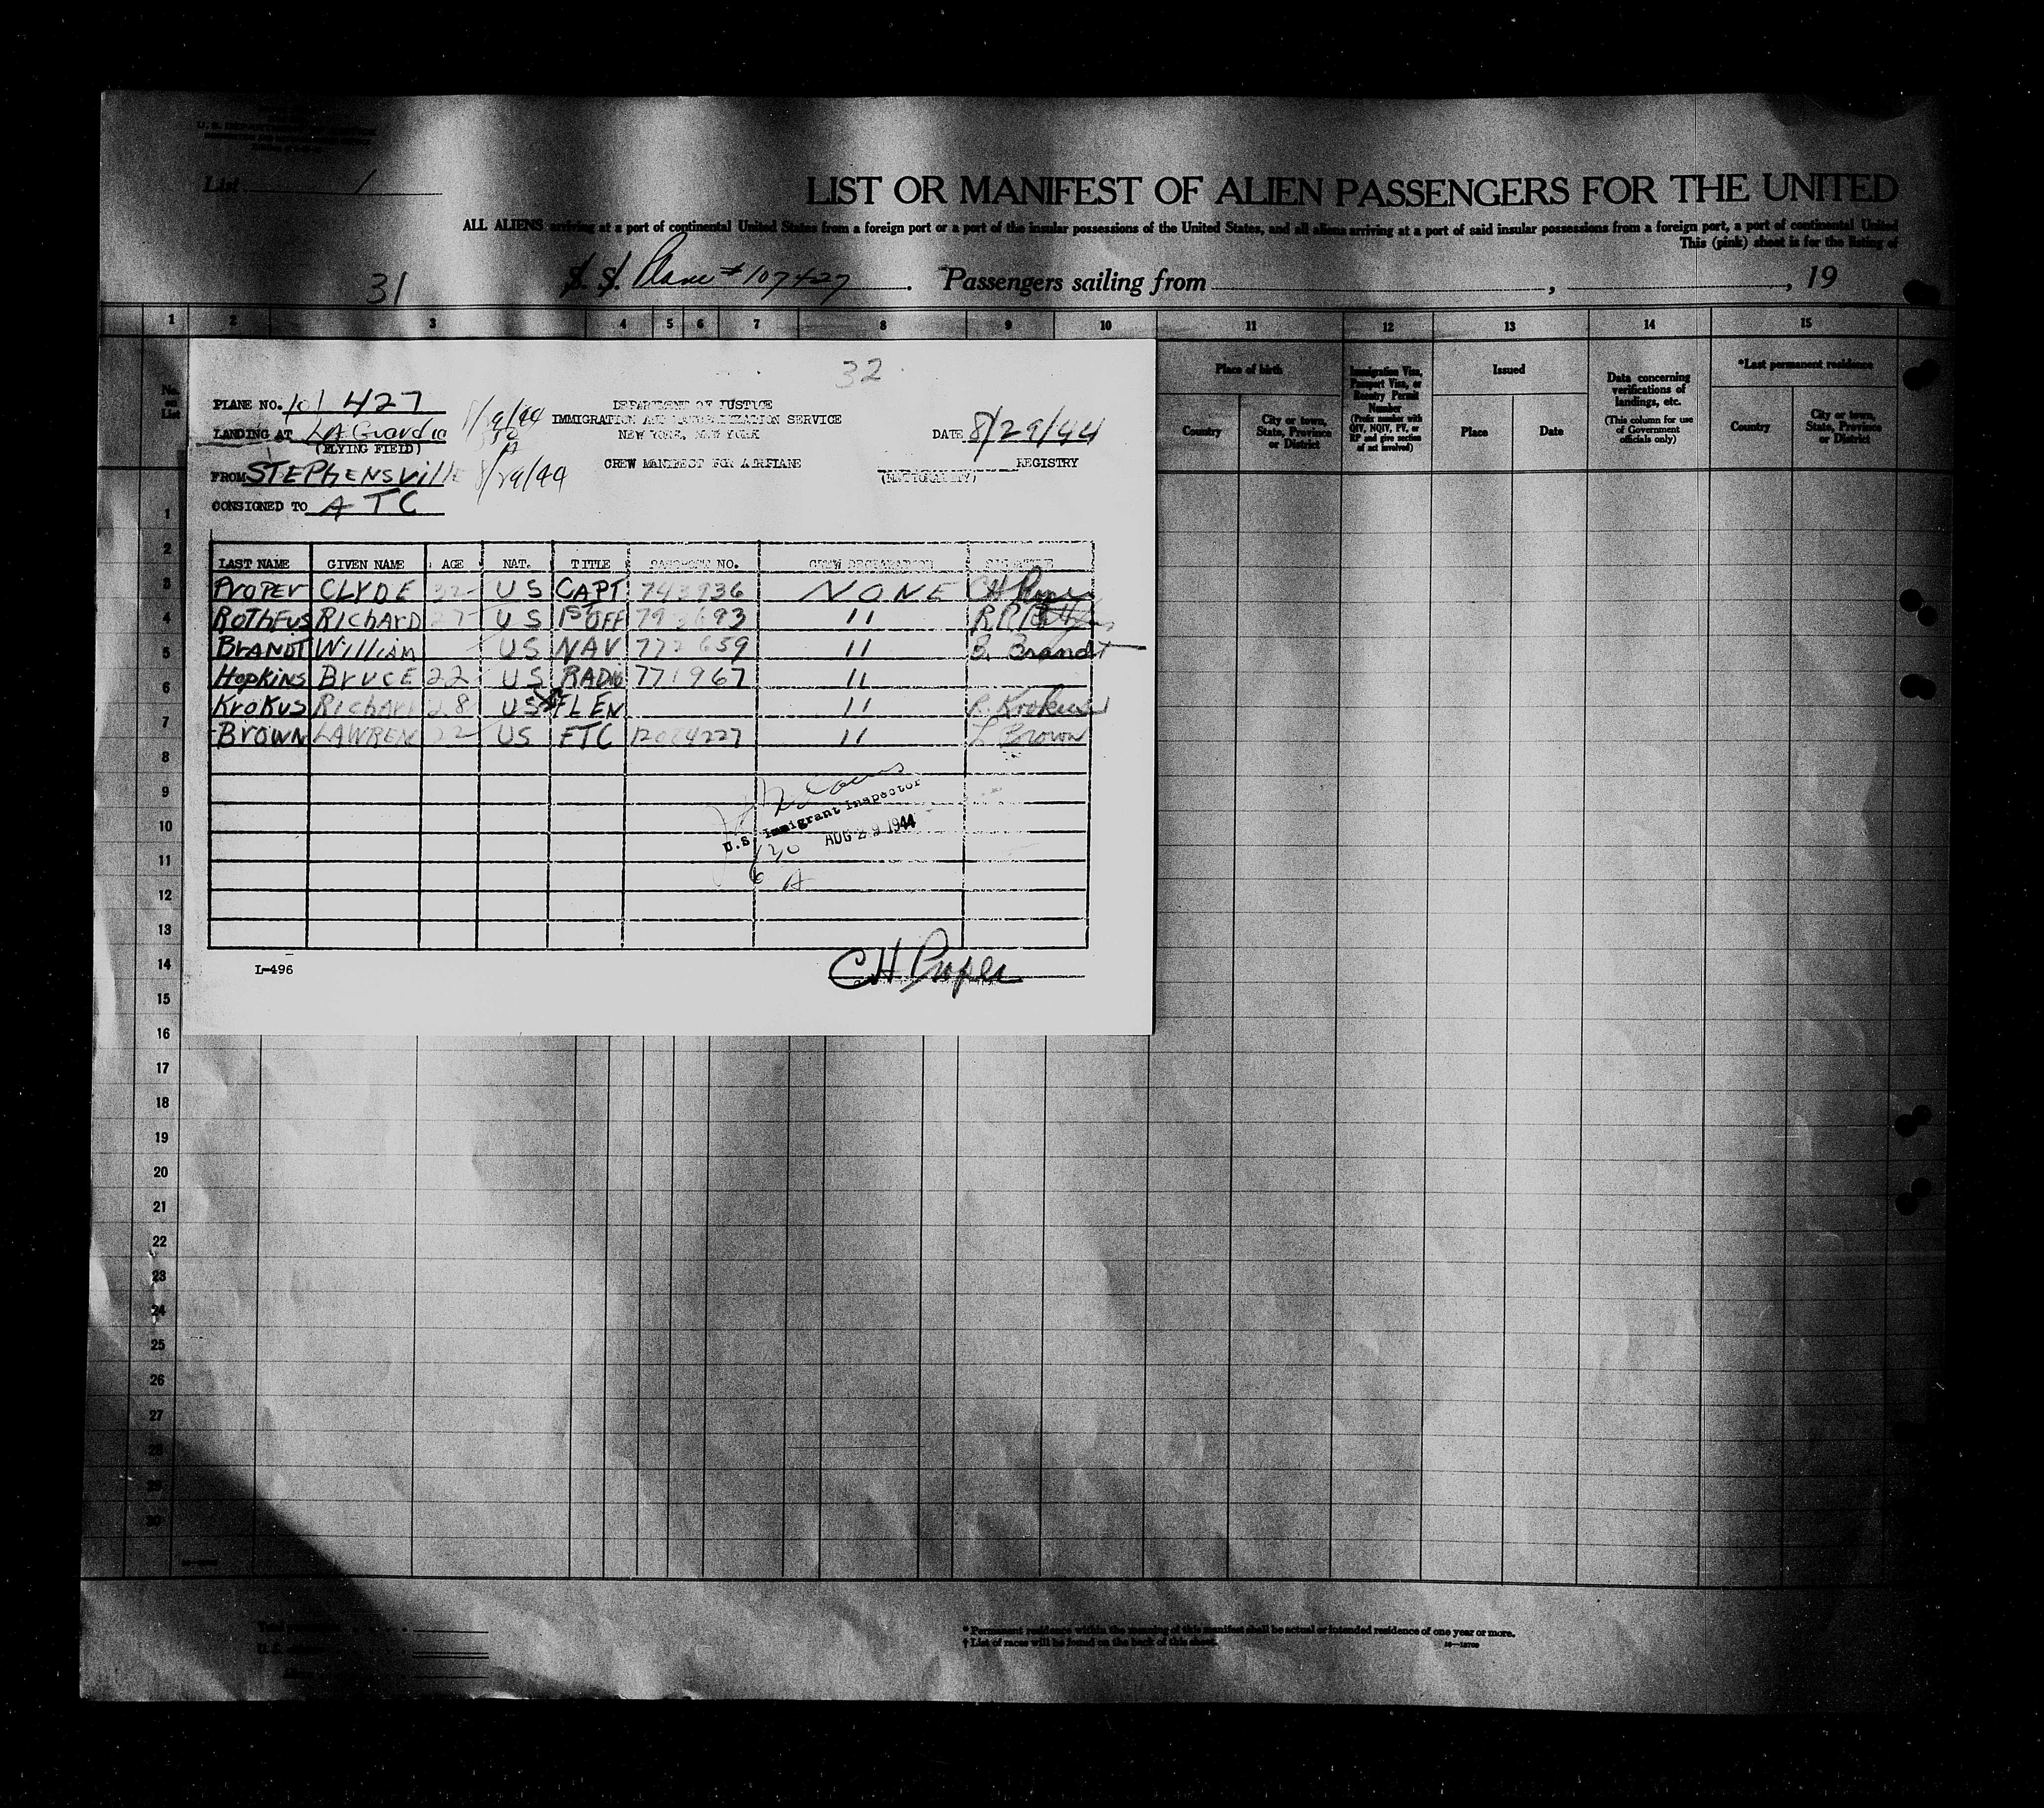 List 1
LIST OR MANIFEST OF ALIEN PASSENGERS FOR THE UNITED
ALL ALIENS arriving at a port of continental United States from a foreign port or a port of the insular possessions of the United States, and all aliens arriving at a port of said insular possessions from a foreign port, a port of continental United
This (pink) sheet is for the listing of
31
S. S. Plane # 107427. Passengers sailing from , , 19
1 2 3 4 5 6 7 8 9 10 11 12 13 14 15
No. on List
Place of birth
Country
City or town, State, Province or District
Immigration Visa, Passport Visa, or Reentry Permit Number
(Prefix number with QIV, NQIV, PV, or RP and give section of act involved)
Issued
Place
Date
Data concerning verifications of landings, etc.
(This column for use of Government officials only)
*Last permanent residence
Country
City or town, State, Province or District
32
PLANE NO. 101427
DEPARTMENT OF JUSTICE
LANDING AT LA Guardia
IMMIGRATION AND NATURALIZATION SERVICE
(FLYING FIELD)
NEW YORK, NEW YORK
DATE 8/29/44
FROM STEPHENSVIllE 8/29/44
CREW MANIFEST FOR AIRPLANE
REGISTRY
(NATIONALITY)
CONSIGNED TO ATC
LAST NAME GIVEN NAME AGE NAT. TITLE PASSPORT NO. CREW DECLARATION SIGNATURE
PROPER CLYDE 32 US CAPT 743936 NONE CH Proper
ROTHEUS RICHARD 27 US 1ST OFF 11
BRANDT WIlliAM US NAV 772659 11 B. Brandt
HOPKINS BRUCE 22 US RADIO 771967 11
KROKUS RICHARD 28 US FL EN 11 R. Krokus
BROWN LAWREN 22 US FTC 12064227 11 L Brown
U.S. Immigrant Inspector
AUG 29 1944
L-496
CH Proper
1
2
3
4
5
6
7
8
9
10
11
12
13
14
15
16
17
18
19
20
21
22
23
24
25
26
27
28
29
30
* Permanent residence within the meaning of this manifest shall be actual or intended residence of one year or more.
† List of races will be found on the back of this sheet.